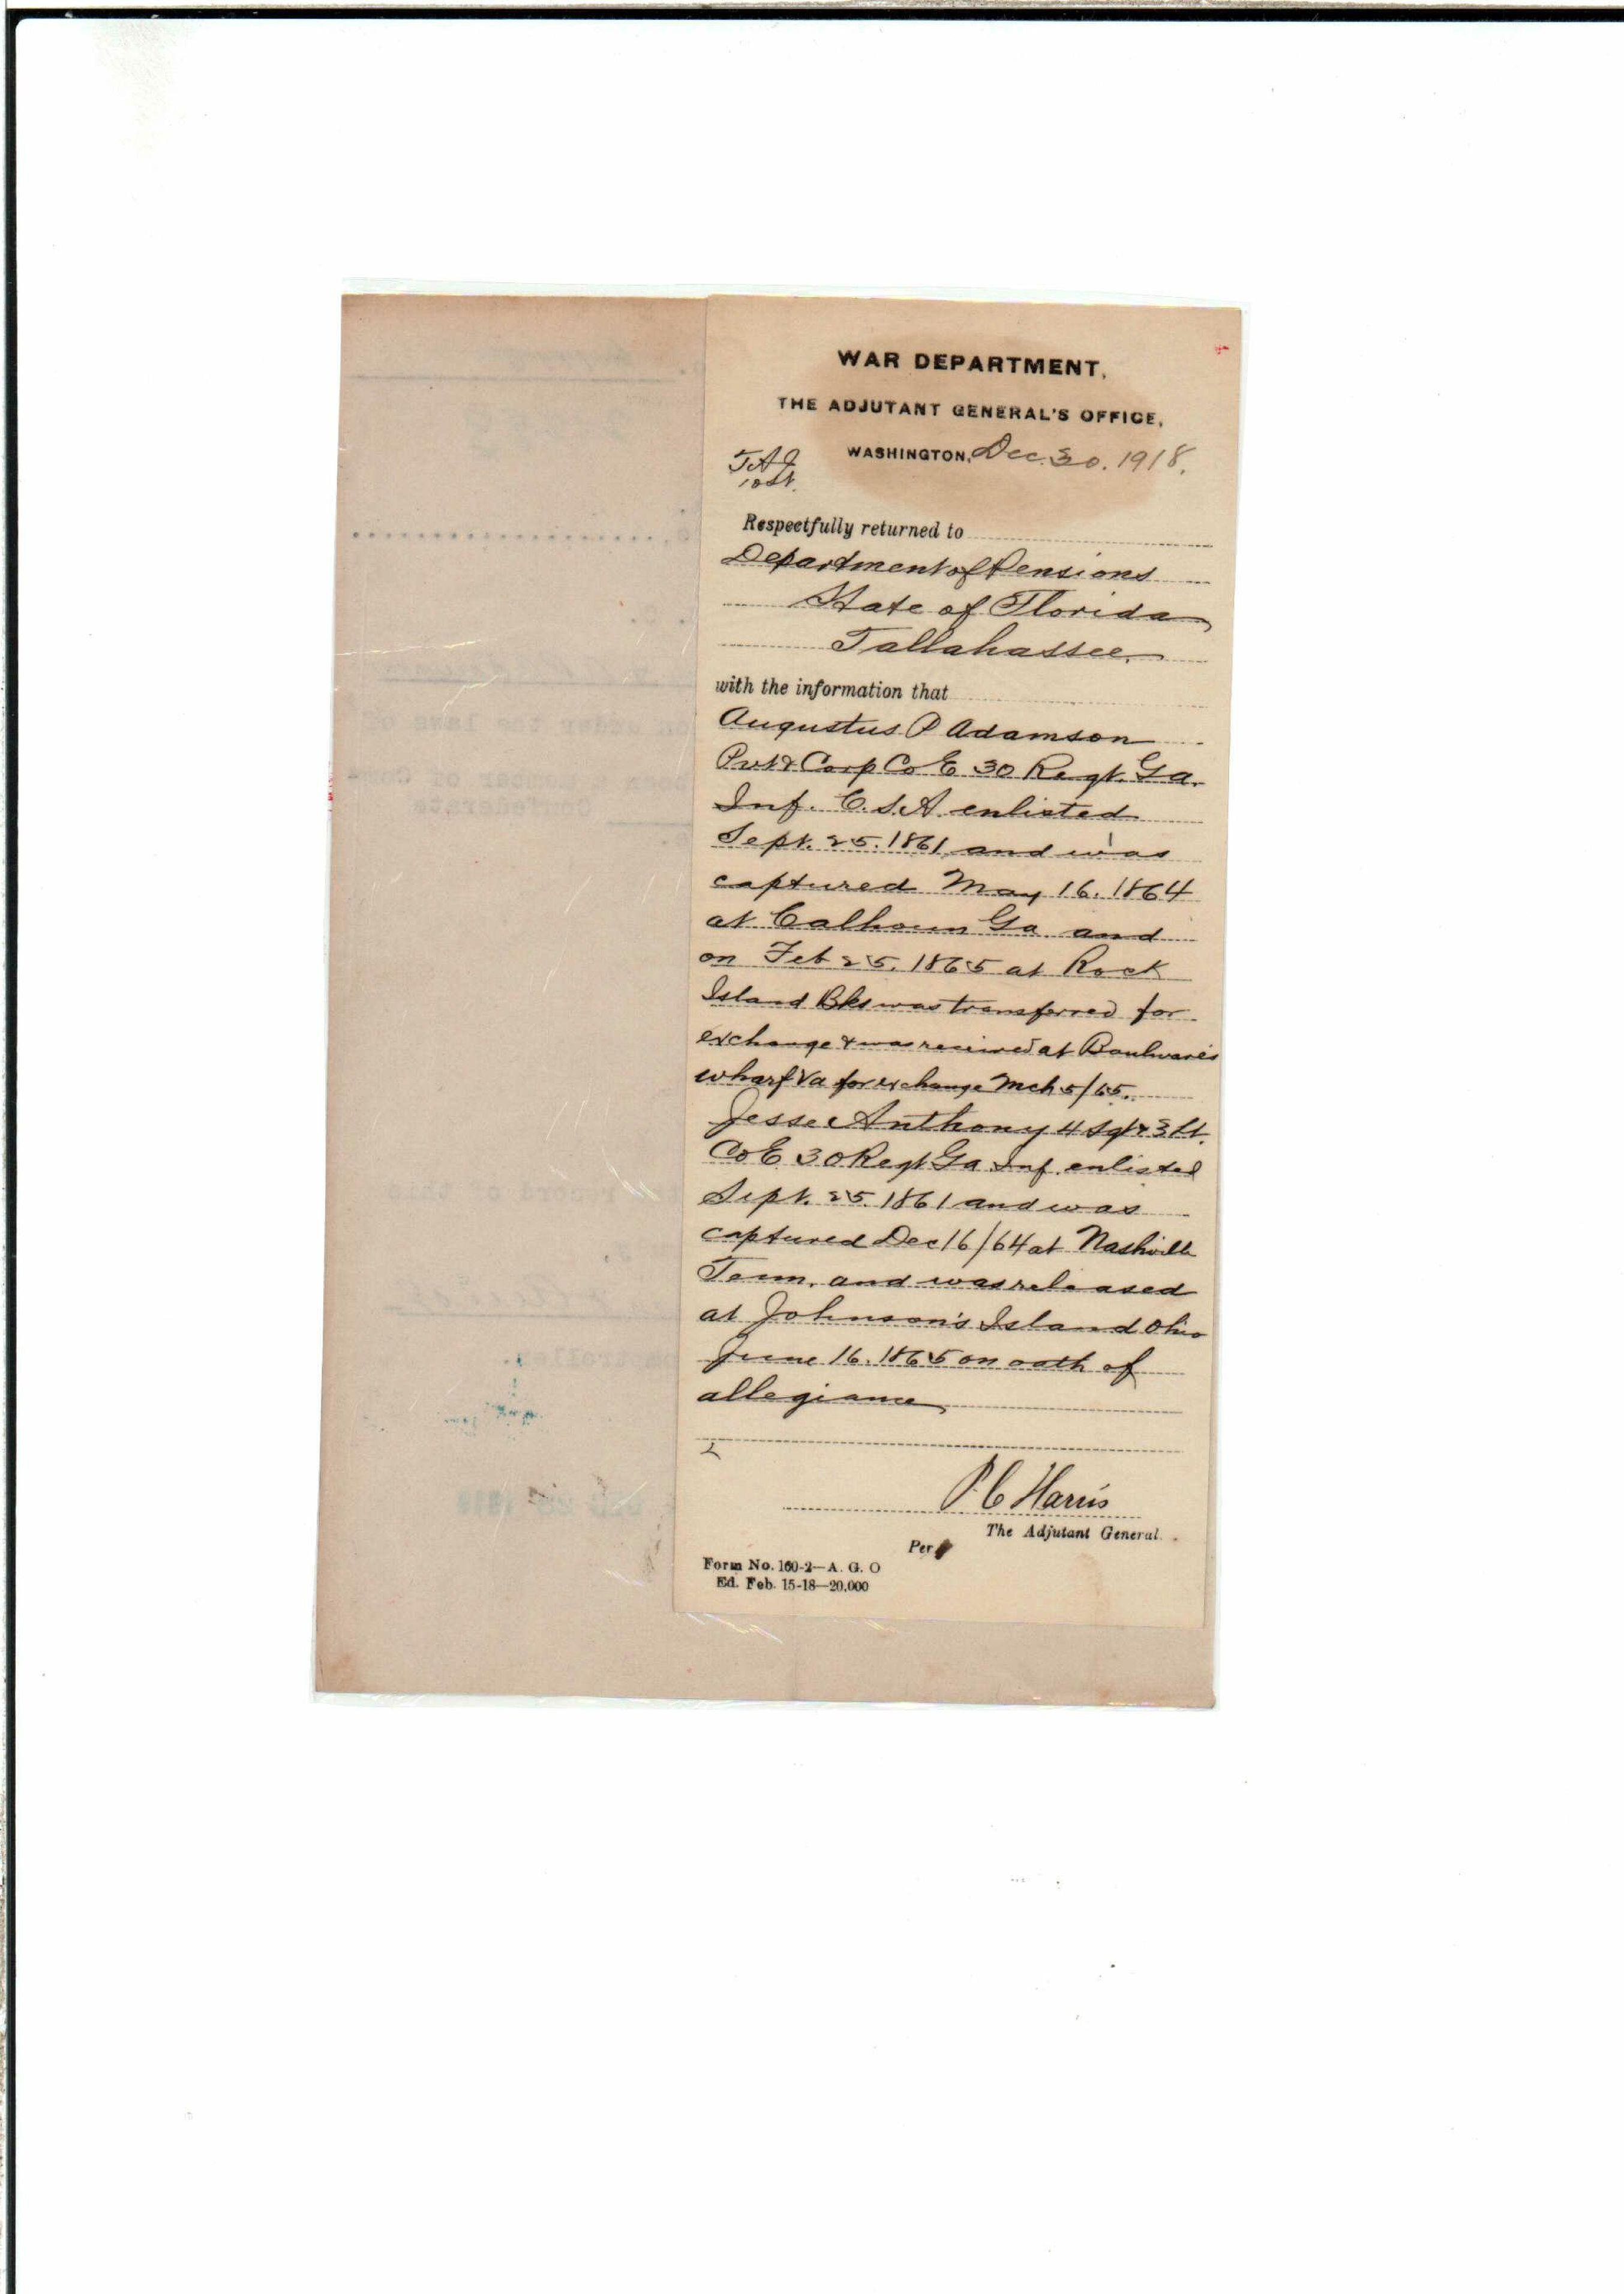 WAR DEPARTMENT,
THE ADJUTANT GENERAL'S OFFICE,
WASHINGTON, Dec. 30. 1918.
Respectfully returned to
Department of Pensions
State of Florida
Tallahassee.
with the information that
Augustus P Adamson
Pvt & Corp Co E 30 Regt. Ga.
Inf. C.S.A. enlisted
Sept. 25. 1861 and was
captured May 16. 1864
at Calhoun Ga. and
on Feb 25. 1865 at Rock
Island Bks was transferred for
exchange & was received at Boulware's
wharf Va for exchange Mch 5/65.
Jesse Anthony 4 Sgt & 3 Lt.
Co E 30 Regt Ga Inf. enlisted
Sept. 25. 1861 and was
captured Dec 16/64 at Nashville
Tenn. and was released
at Johnson's Island Ohio
June 16. 1865 on oath of
allegiance
P C Harris
The Adjutant General.
Per
Form No. 160-2—A. G. O
Ed. Feb. 15-18—20,000